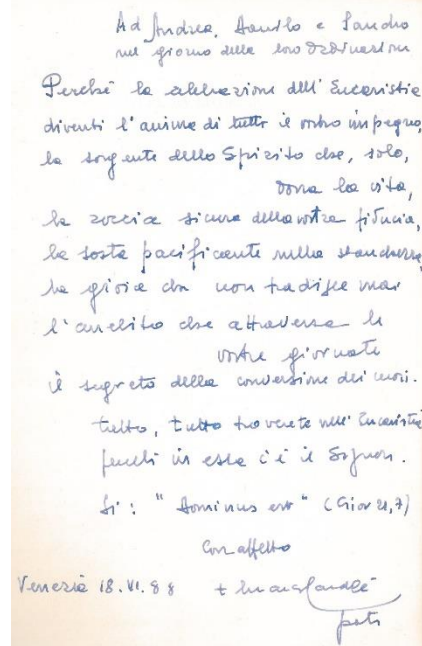 Ad Andrea, Danilo e Sandro
nel giorno della loro Ordinazione
Perché la celebrazione dell'Eucaristia
diventi l'anima di tutto il vostro impegno,
la sorgente dello Spirito che, solo,
dona la vita,
la roccia sicura della vostra fiducia,
la sosta pacificante nella stanchezza,
la gioia che non tradisce mai
l'anelito che attraversa le
vostre giornate
il segreto della conversione dei cuori.
tutto, tutto troverete nell'Eucaristia
perché in essa c'è il Signore.
Sì: "Dominus est" (Giov 21,7)
Con affetto
Venezia 18.VI.88 + Marco Cè
patr